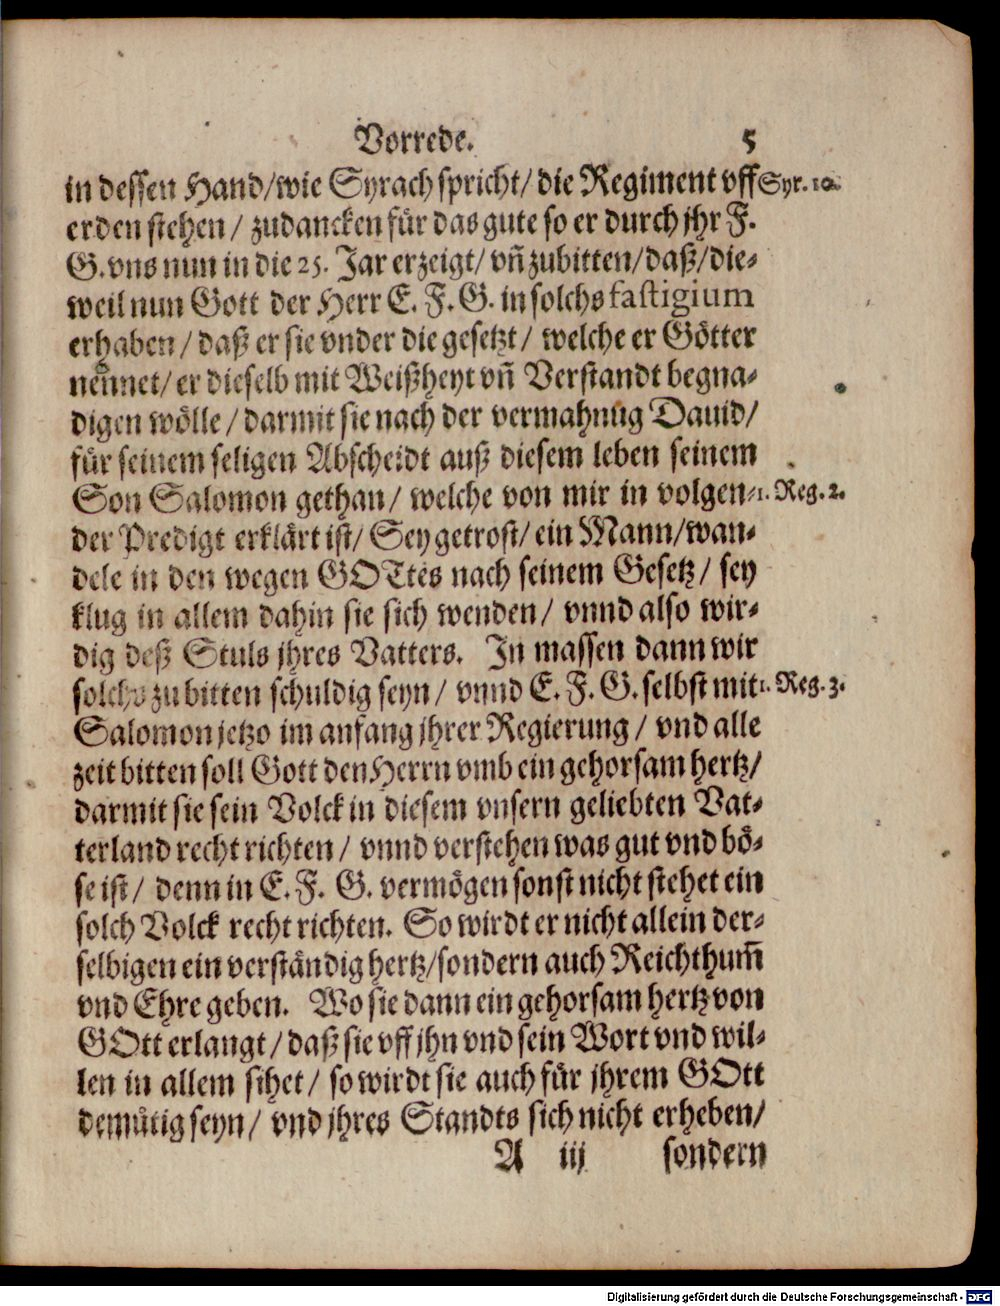 Vorrede. 5
in dessen Hand/wie Syrach spricht/ die Regiment vff Syr. 10.
erden stehen / zudancken für das gute so er durch jhr F.
G. vns nun in die 25. Jar erzeigt/ vñ zubitten/daß/die-
weil nun Gott der Herr E. F. G. in solchs fastigium
erhaben / daß er sie vnder die gesetzt / welche er Götter
nennet/ er dieselb mit Weißheyt vñ Verstandt begna-
digen wölle / darmit sie nach der vermahnũg Dauid/
für seinem seligen Abscheidt auß diesem leben seinem
Son Salomon gethan/ welche von mir in volgen- 1. Reg. 2.
der Predigt erklärt ist/ Sey getrost/ ein Mann/wan-
dele in den wegen GOTtes nach seinem Gesetz / sey
klug in allem dahin sie sich wenden/ vnnd also wir-
dig deß Stuls jhres Vatters. In massen dann wir
solchs zu bitten schuldig seyn / vnnd E. F. G. selbst mit 1. Reg. 3.
Salomon jetzo im anfang jhrer Regierung / vnd alle
zeit bitten soll Gott den Herrn vmb ein gehorsam hertz/
darmit sie sein Volck in diesem vnsern geliebten Vat-
terland recht richten / vnnd verstehen was gut vnd bö-
se ist / denn in E. F. G. vermögen sonst nicht stehet ein
solch Volck recht richten. So wirdt er nicht allein der-
selbigen ein verständig hertz/sondern auch Reichthum̃
vnd Ehre geben. Wo sie dann ein gehorsam hertz von
GOtt erlangt / daß sie vff jhn vnd sein Wort vnd wil-
len in allem sihet / so wirdt sie auch für jhrem GOtt
demütig seyn / vnd jhres Standts sich nicht erheben/
A iij sondern
Digitalisierung gefördert durch die Deutsche Forschungsgemeinschaft - DFG